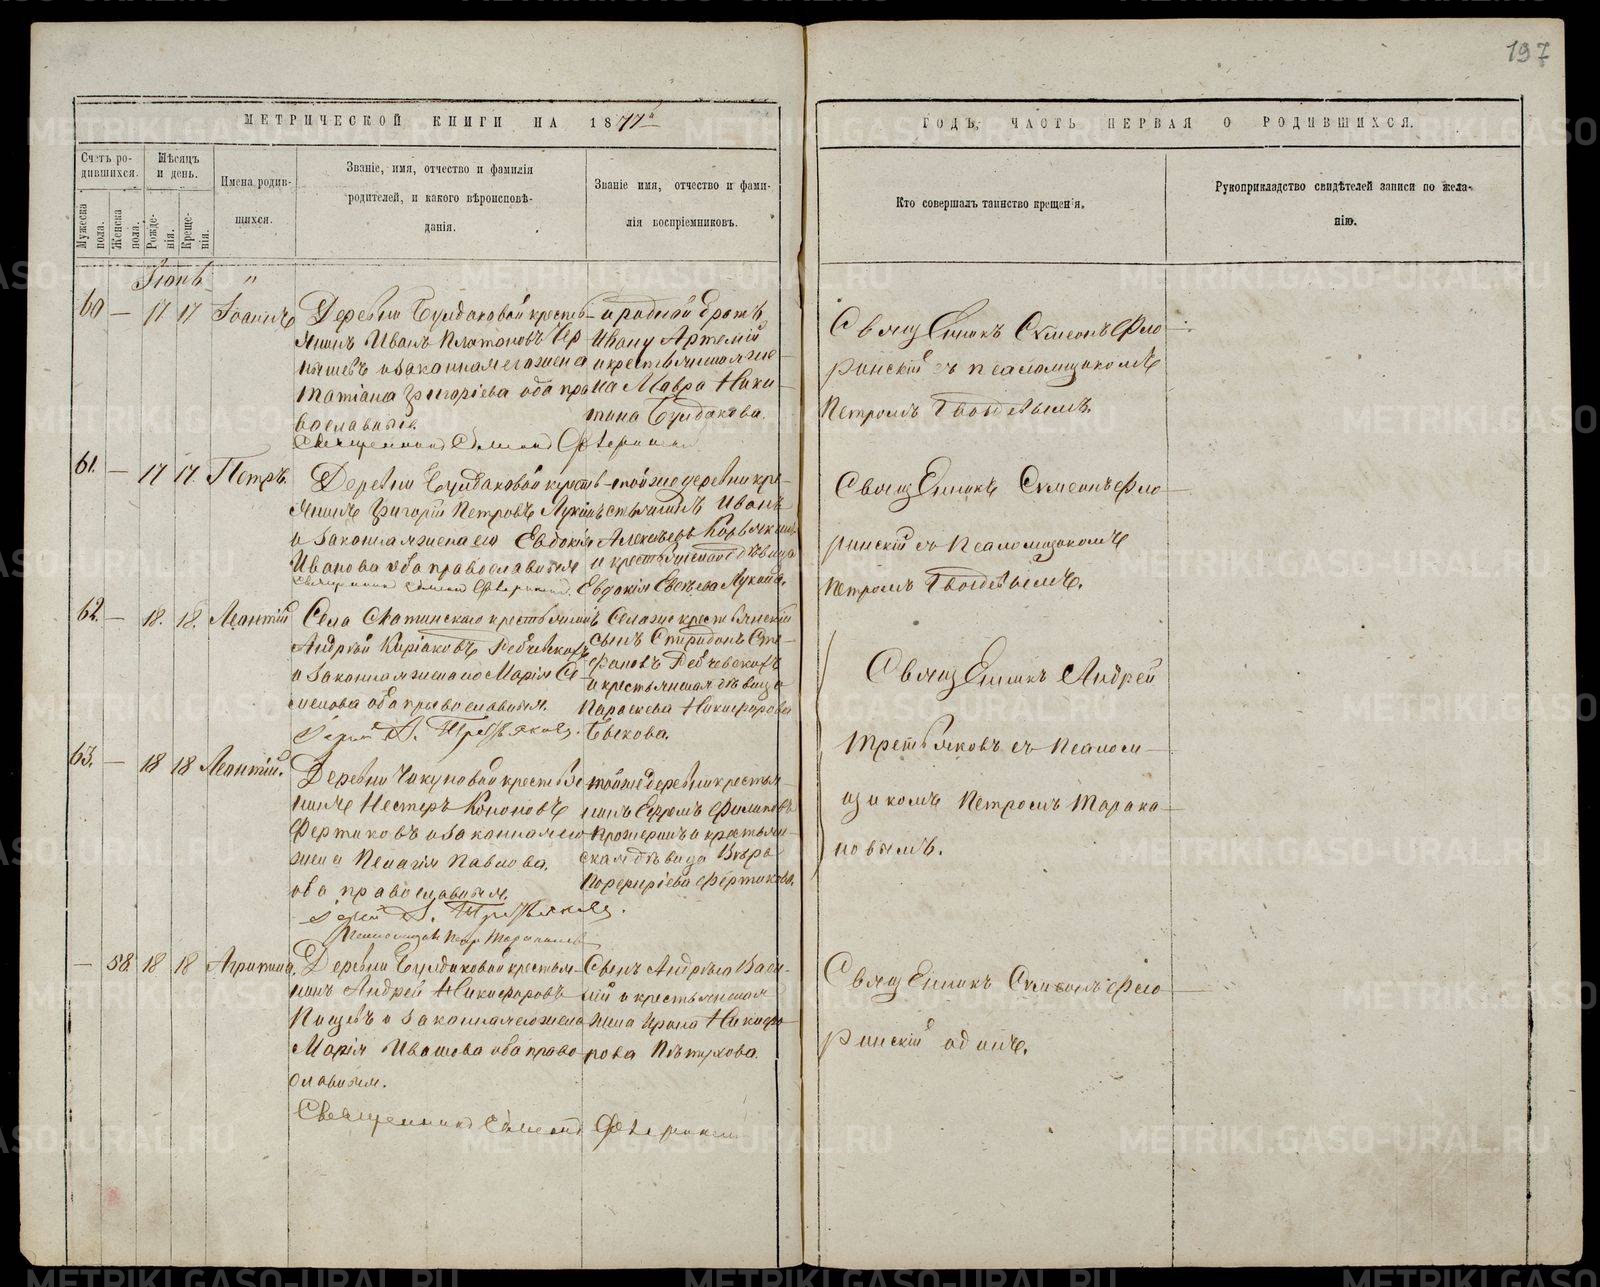 197
МЕТРИЧЕСКОЙ КНИГИ НА 1877й
ГОДЪ, ЧАСТЬ ПЕРВАЯ О РОДИВШИХСЯ.
Счетъ ро-
дившихся.
Мѣсяцъ
и день.
Мужеска
пола.
Женска
пола.
Рожде-
нія.
Креще-
нія.
Имена родив-
шихся.
Званіе, имя, отчество и фамилія
родителей, и какого вѣроисповѣ-
данія.
Званіе имя, отчество и фами-
лія воспріемниковъ.
Кто совершалъ таинство крещенія.
Рукоприкладство свидѣтелей записи по жела-
нію.
Іюнь "
60 — 17 17 Іоаннъ
Деревни Булдаковой кресть-
янинъ Иванъ Платоновъ
и законная его жена
Татіана Григоріева оба пра-
вославныя.
родной братъ
Ивану Артемій
и крестьянская же-
на Мавра Ники-
тина Булдакова.
Священникъ Симеонъ Фло
ринскій съ псаломщикомъ
Петромъ Гвоздевымъ.
61. — 17 17. Петръ.
Деревни Булдаковой кресть-
янинъ Григорій Петровъ
и законная жена его Евдокія
Иванова оба православныя
той же деревни кре-
стьянинъ Иванъ
Алексѣевъ
и крестьянская дѣвица
Евдокія
Священникъ Симеонъ Фло
ринскій съ псаломщикомъ
Петромъ Гвоздевымъ.
62. — 18. 18. Леонтій
Села Скатинскаго крестьянинъ
Андрей Киріаковъ
и законная жена его Марія Се-
менова оба православныя.
Іерей А. Третьяковъ.
Села же крестьянскій
сынъ Спиридонъ Сте-
фановъ
и крестьянская дѣвица
Параскева Никифорова
Священникъ Андрей
Третьяковъ съ псалом-
щикомъ Петромъ Тарака-
новымъ.
63. — 18 18 Леонтій.
Деревни Чакуновой крестья-
нинъ Несторъ Кононовъ
Фертиковъ и законная его
жена Пелагія Павлова,
оба православныя.
Іерей А. Третьяковъ.
Псаломщикъ Петръ Таракановъ
той же деревни крестья-
нинъ Ефремъ Филиповъ
и крестьян-
ская дѣвица Вѣра
Порфиріева Фертикова.
— 58 18 18 Агрипина.
Деревни Булдаковой крестья-
нинъ Андрей Никифоровъ
и законная его жена
Марія Ивашова оба право-
славныя.
Сынъ Андрея Васи-
лій и крестьянская
жена Ирина Никифо-
рова Пѣтухова.
Священникъ Симеонъ Фло
ринскій одинъ.